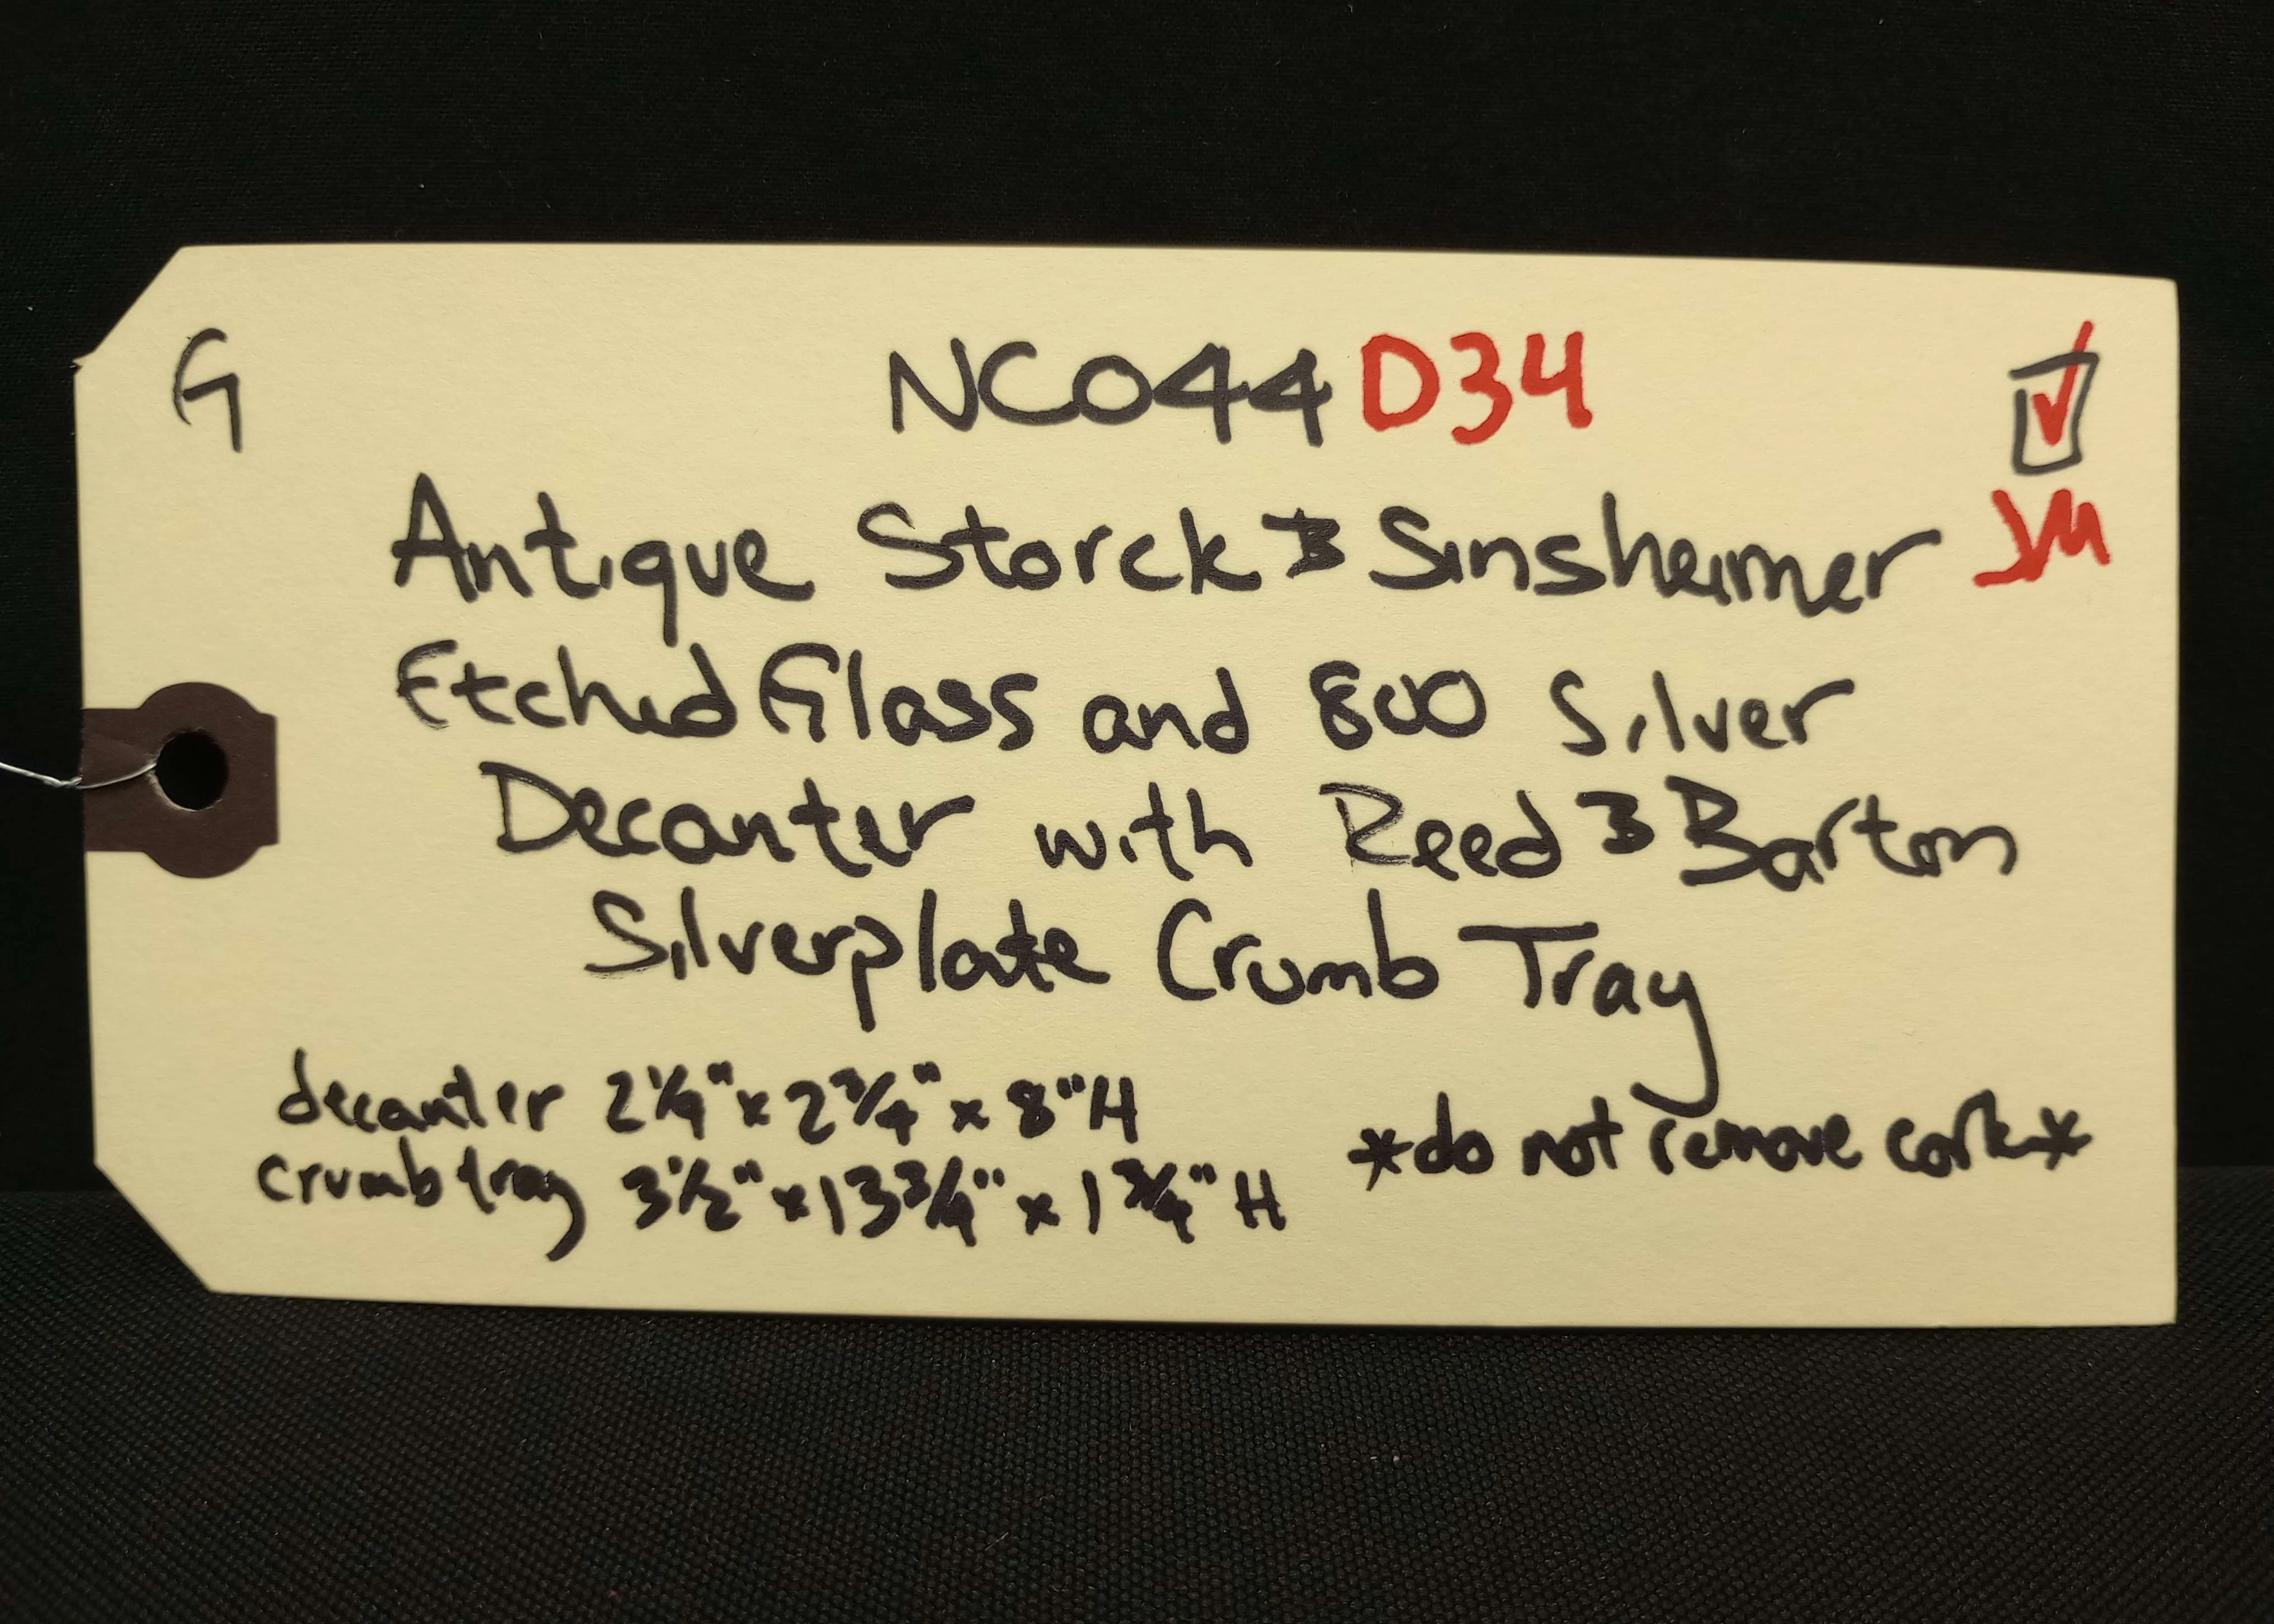 G NC044 D34 ☑
Antique Storck & Sinsheimer JM
Etched Glass and 800 Silver
Decanter with Reed & Barton
Silverplate Crumb Tray
decanter 2 1/4" x 2 3/4" x 8" H
*do not remove cork*
crumb tray 3 1/2" x 13 3/4" x 1 3/4" H